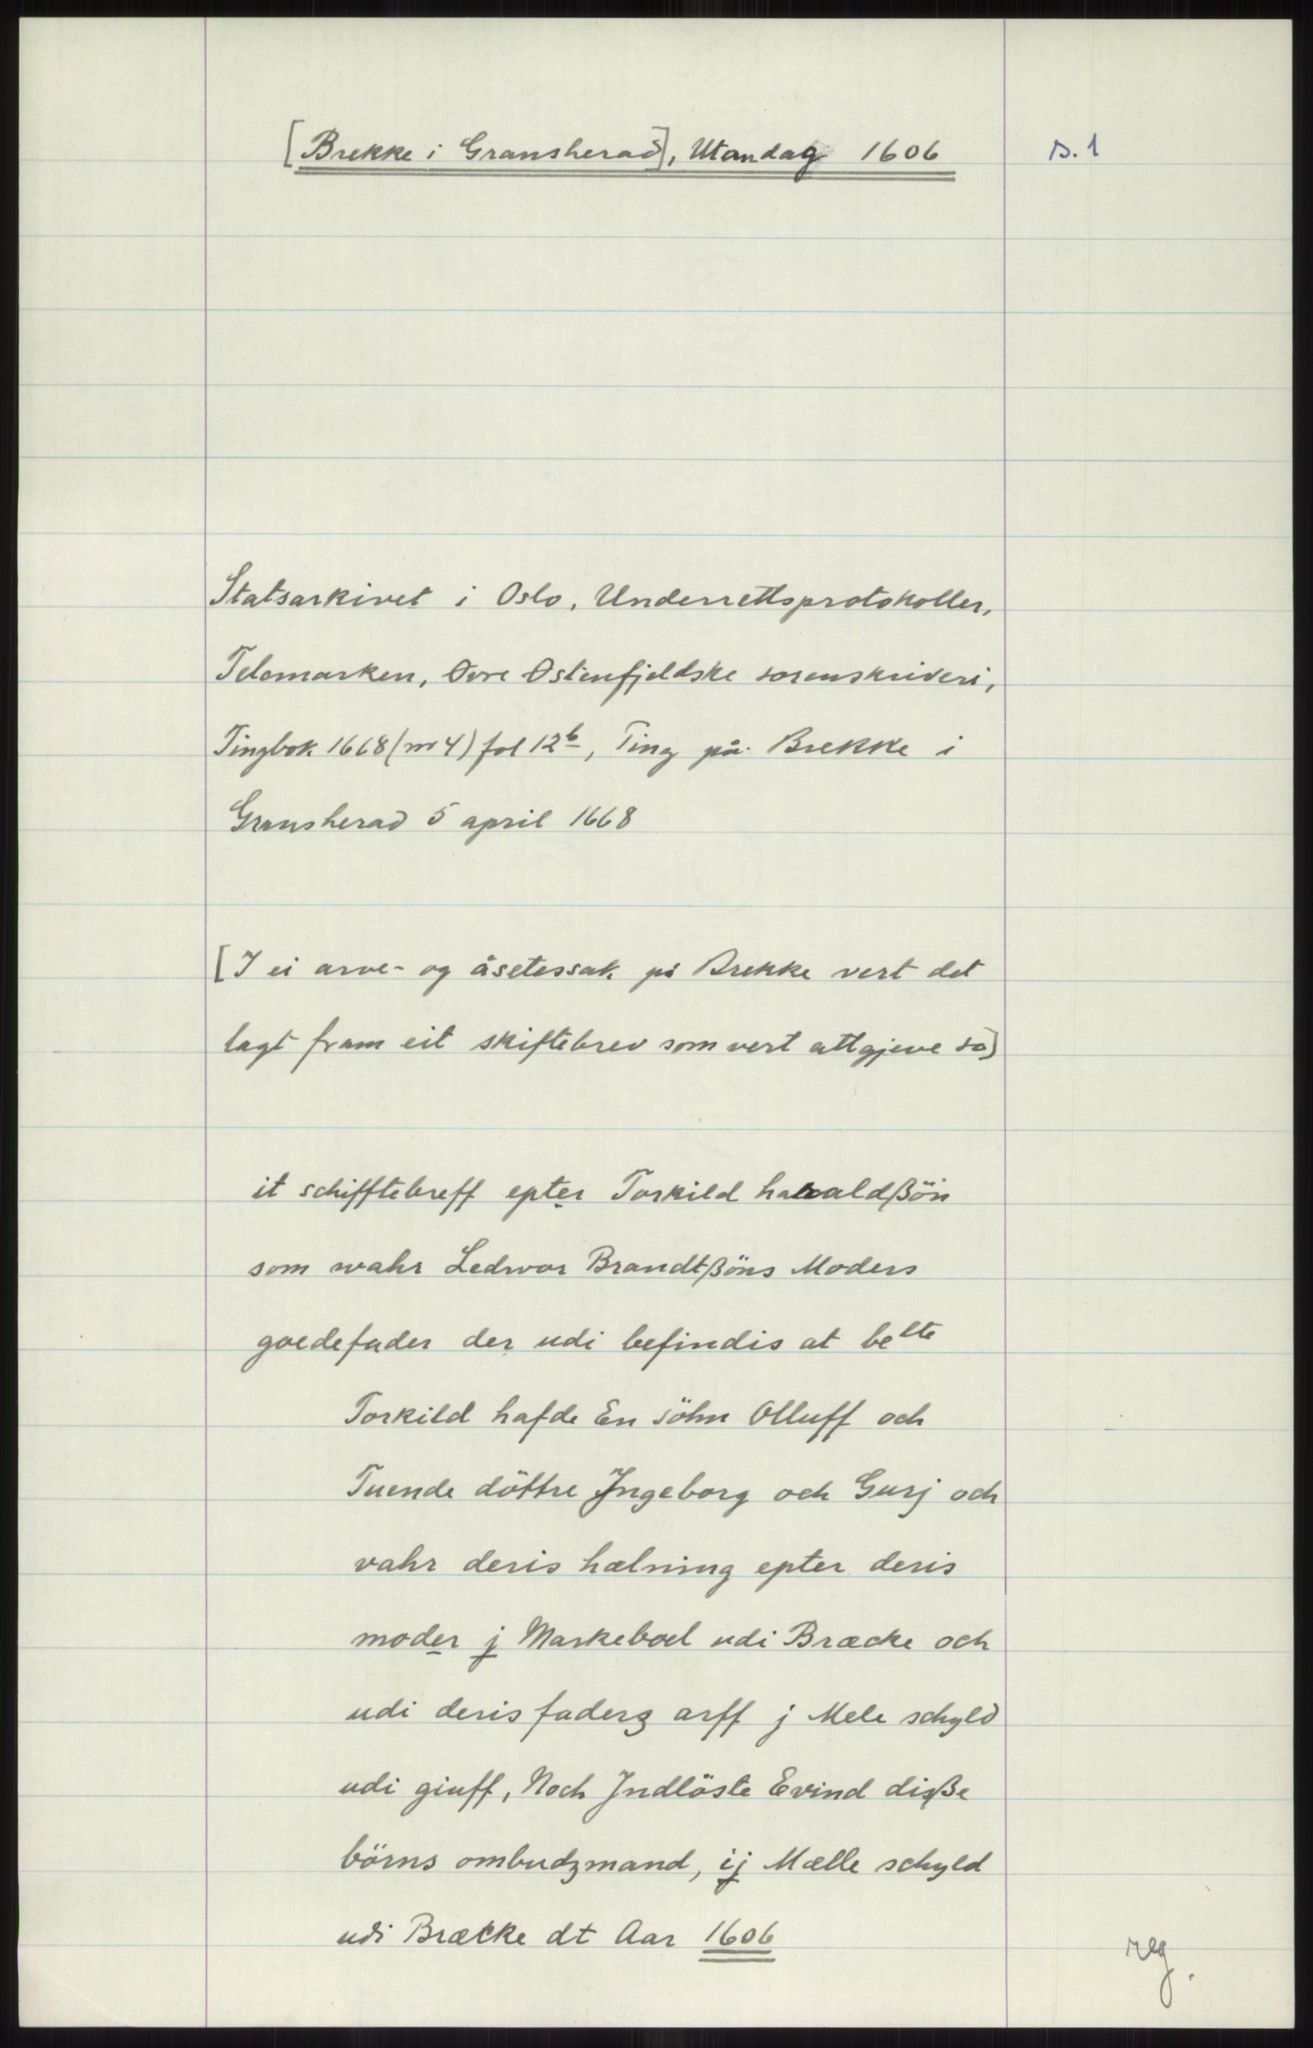 [Brekke i Gransherad], Utandag 1606
s. 1
Statsarkivet i Oslo, Underrettsprotokoller,
Telemarken, Øvre Østenfjeldske sorenskriveri,
Tingbok 1668 (nr 4) fol 12b, Ting på Brekke i
Gransherad 5 april 1668
[I ei arve- og åsetessak på Brekke vert det
lagt fram eit skiftebrev som vert attgjeve so]
it schifftebreff epter Torkild haraldßön
som wahr Ledwor Brandtßöns Moders
goedefader der udi befindis at belte
Torkild hafde En söhn Olluff och
Tuende döttre Jngeborg och Gurj och
vahr deris hælning epter deris
moder j Markeboel udi Bræcke och
udi deris faderz arff j Mele schyld
udi giuff, Noch Jndlöste Evind diße
börns ombudzmand, ij Mælle schyld
udi Bræcke dt Aar 1606
reg.